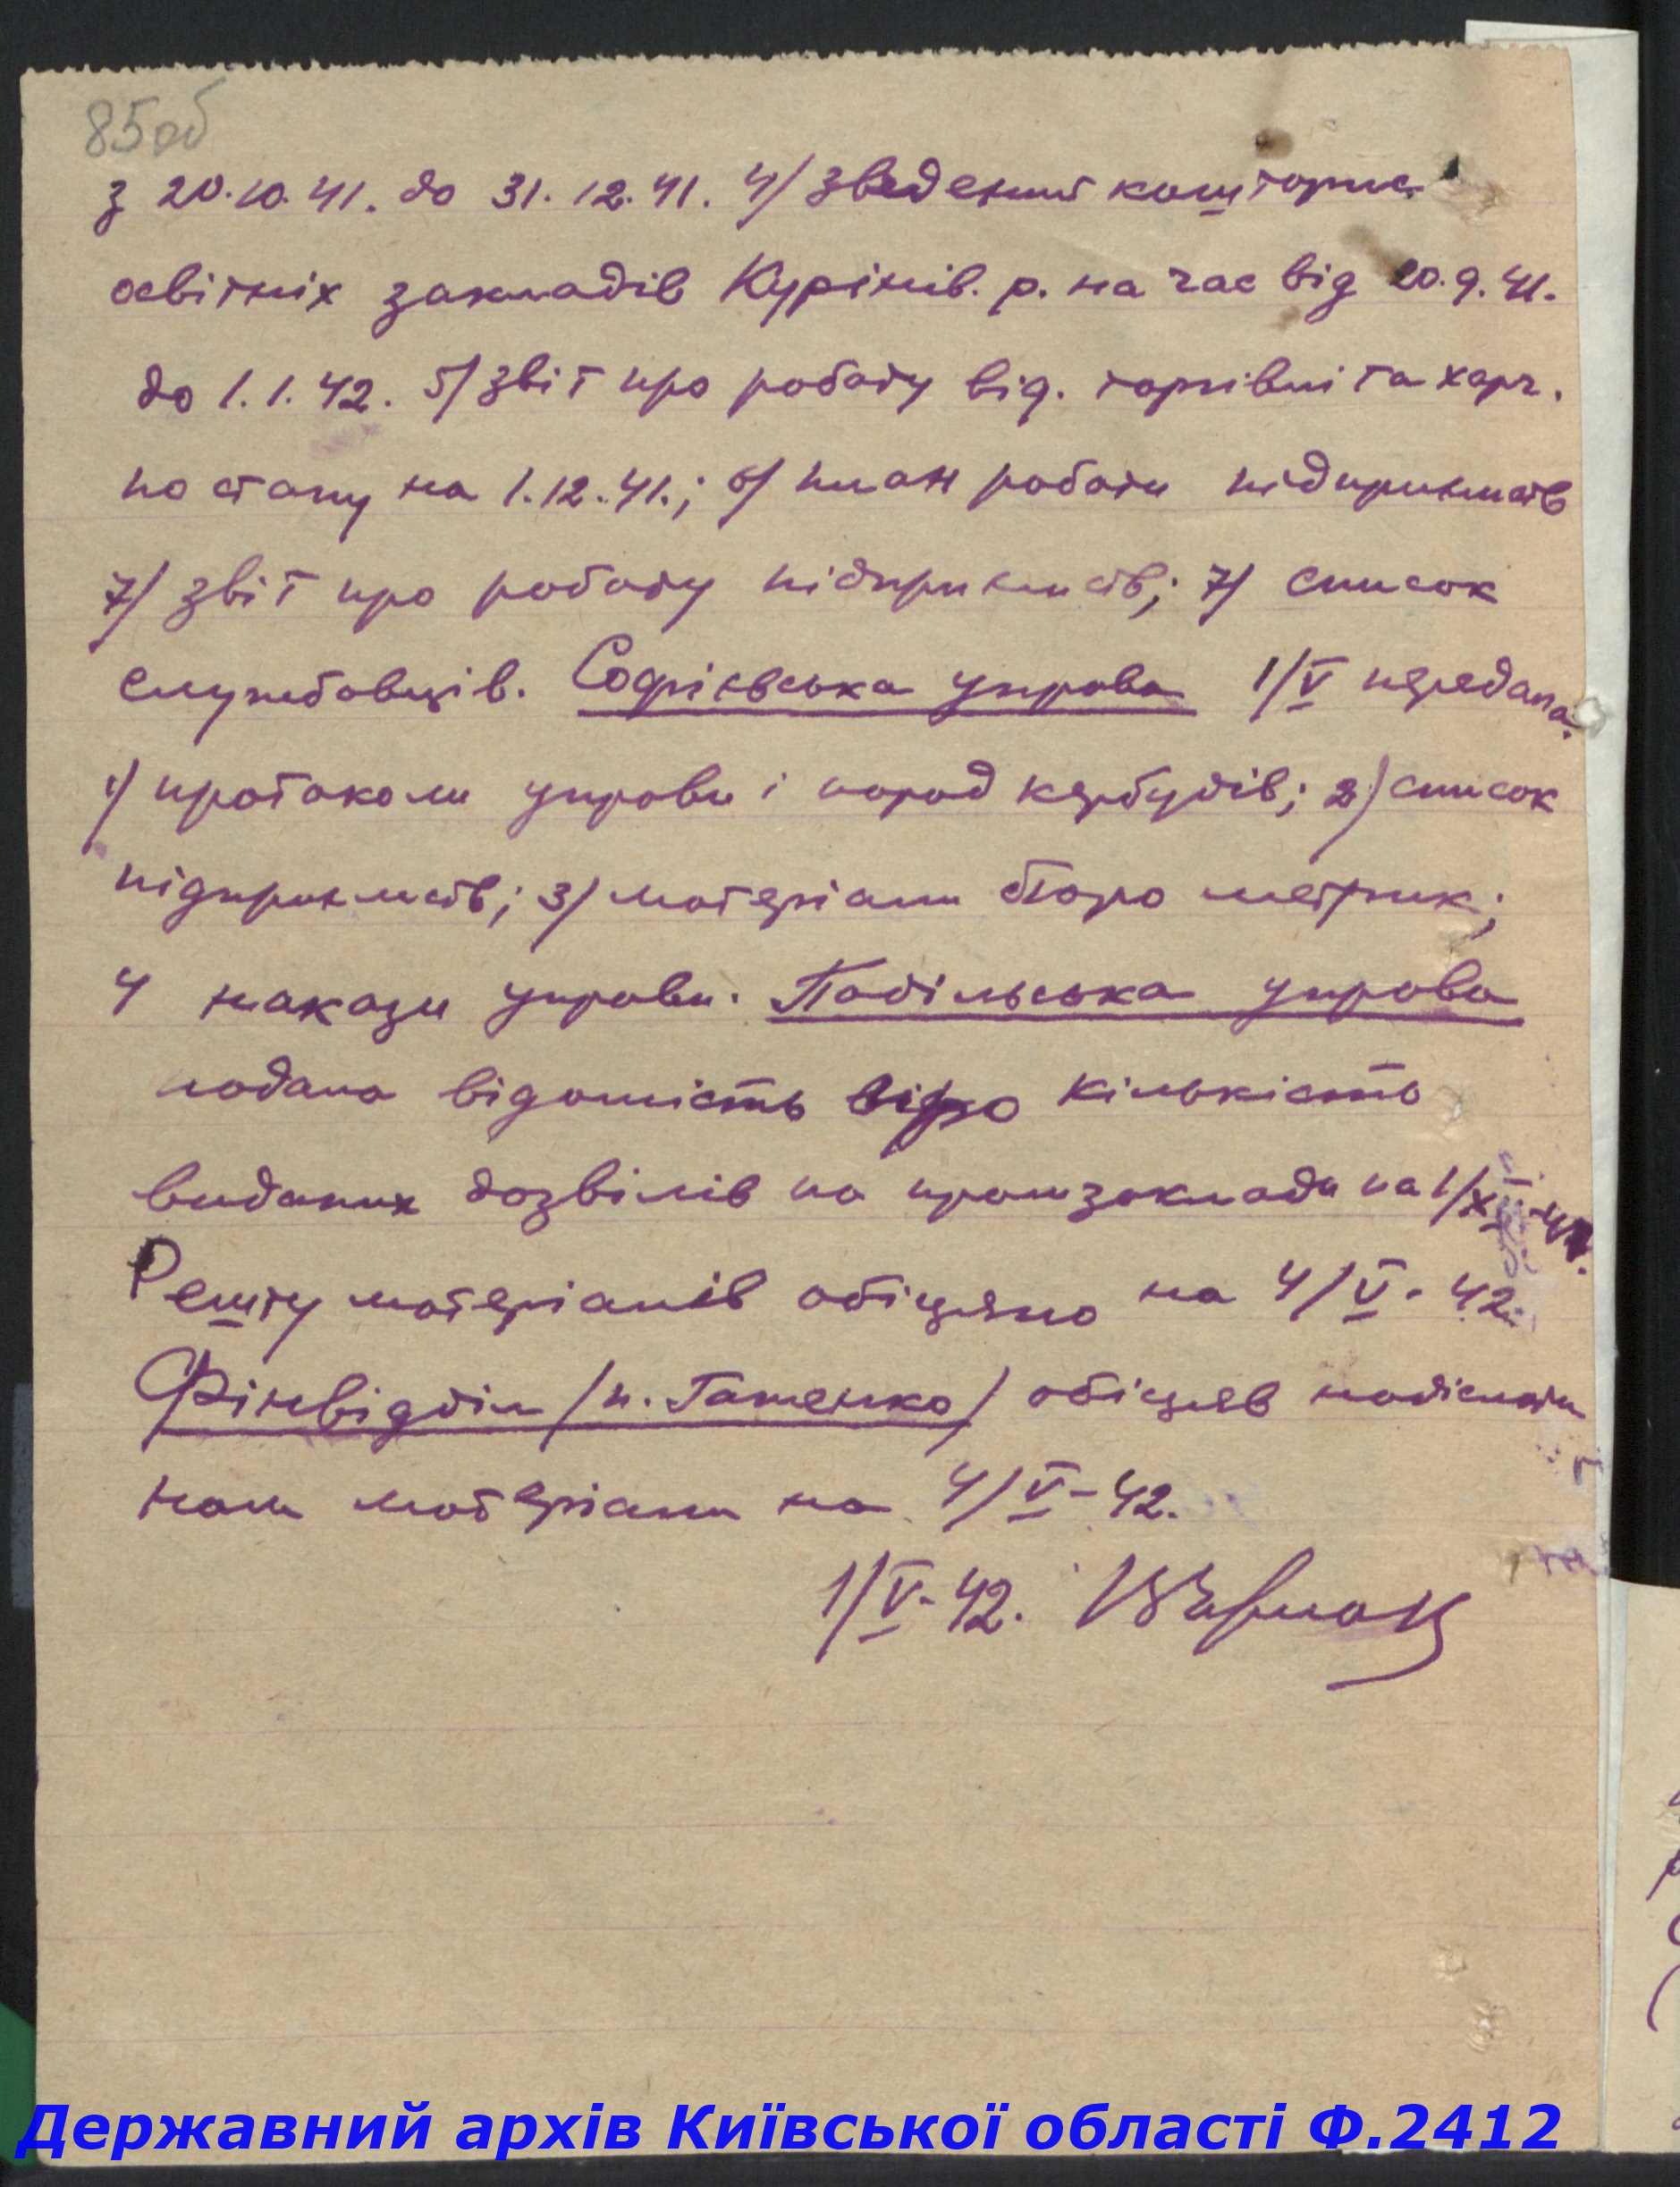 85об
з 20.10.41. до 31.12.41. 4/ зведений кошторис
освітніх закладів Курінів. р. на час від 20.9.41.
до 1.1.42. 5/ звіт про роботу від. торгівлі та харч.
по стану на 1.12.41.; 6/ план роботи підприємств
7/ звіт про роботу підприємств; 7/ список
службовців. Софіївська управа 1/V передала:
1/ протоколи управи і нарад кербудів; 2/ список
підприємств; 3/ матеріали бюро метрик;
4 накази управи. Подільська управа
подала відомість про кількість
виданих дозвілів на промзаклади на 1/X -41.
Решту матеріалів обіцяно на 4/V-42.
Фінвідділ /п. Гашенко/ обіцяв надіслати
нам матеріали на 4/V-42.
1/V-42.
Державний архів Київської області Ф.2412